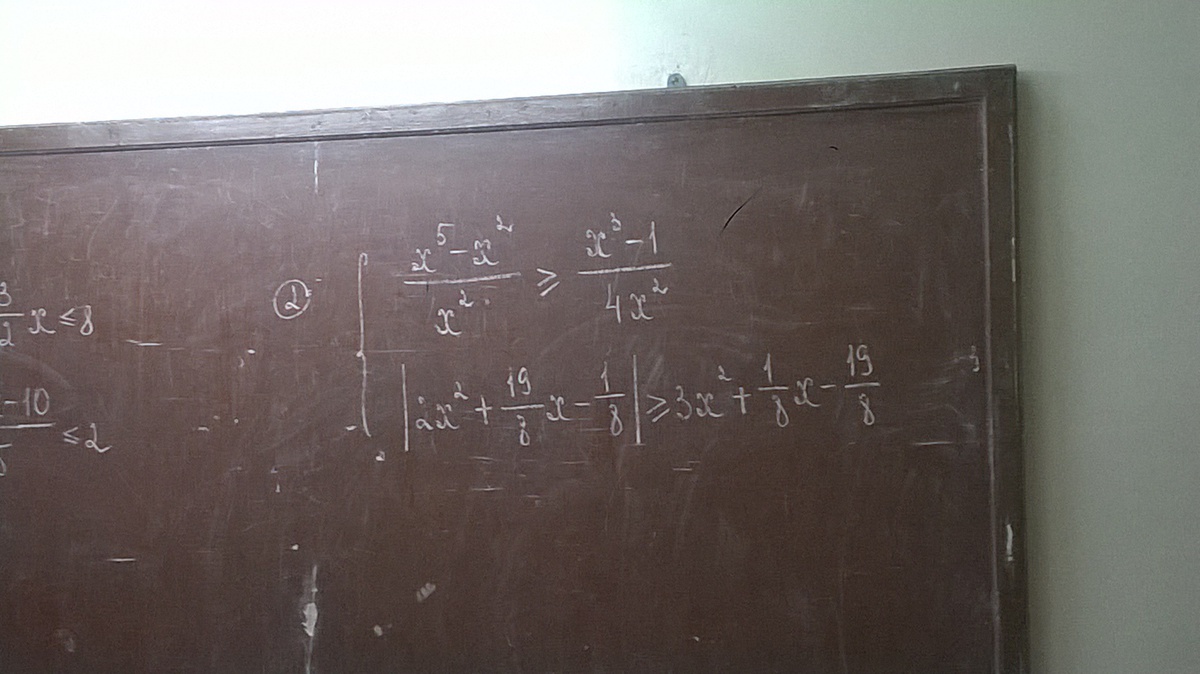 3/2 x ≤ 8
-10 ≤ 2
② { (x⁵ - x²)/x² ≥ (x³ - 1)/(4x²)
|2x² + 19/8 x - 1/8| ≥ 3x² + 1/8 x - 19/8